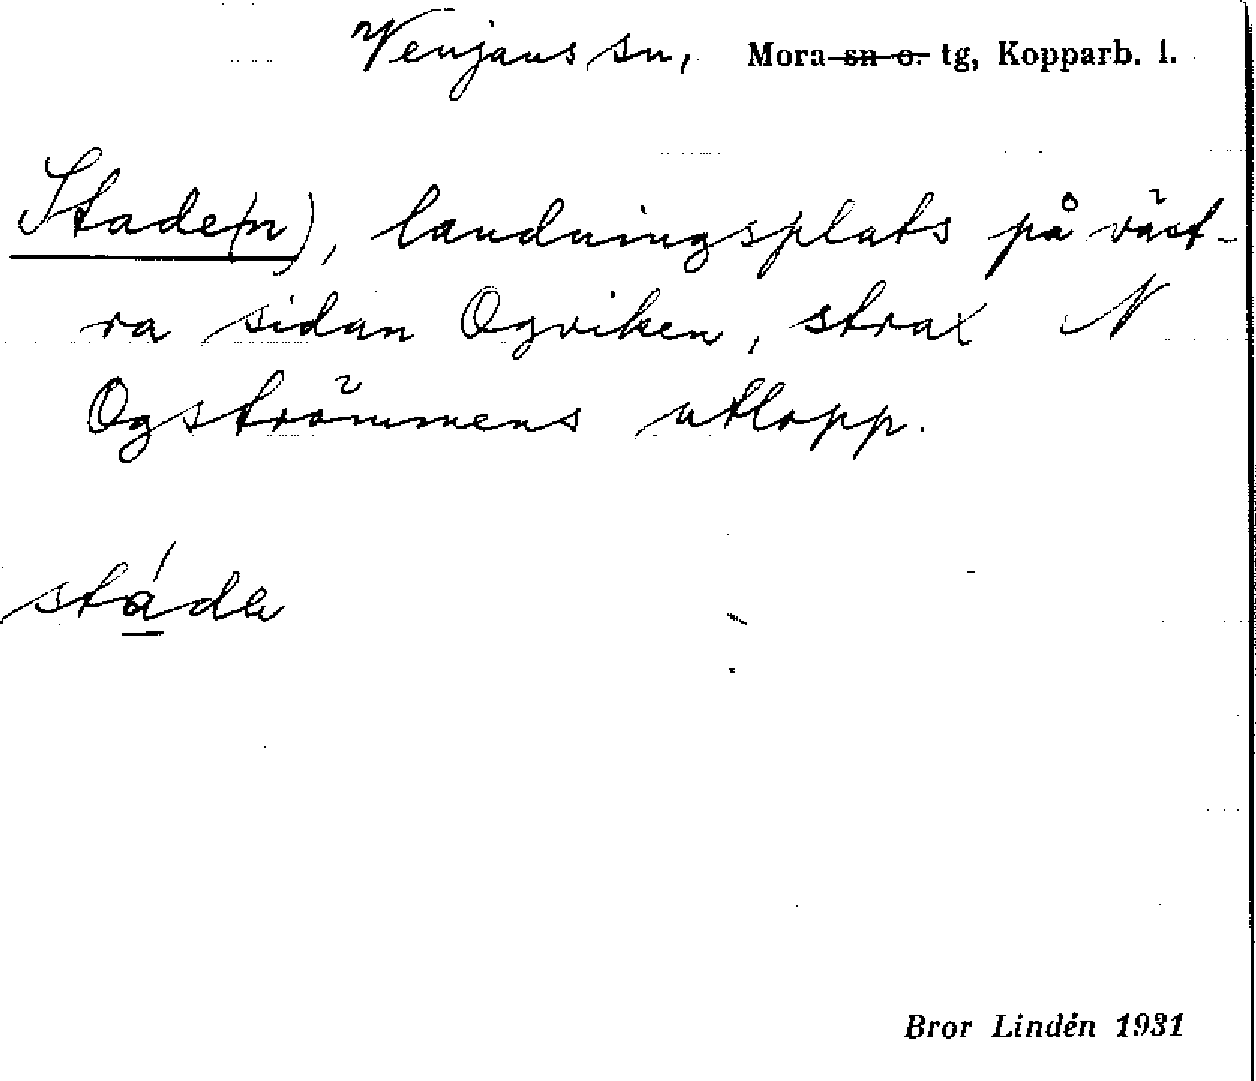 Venjans sn, Mora sn o. tg, Kopparb. l.
Stade(n), landningsplats på väst-
ra sidan Ogviken, strax N
Ogströmmens utlopp.
Bror Lindén 1931